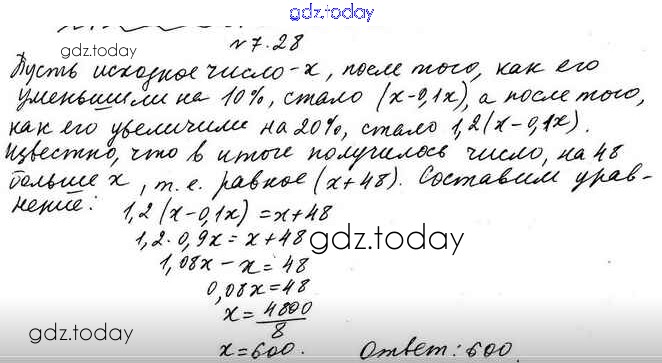 gdz.today
gdz.today
№7.28
Пусть исходное число - x, после того, как его
уменьшили на 10%, стало (x-0,1x), а после того,
как его увеличили на 20%, стало 1,2(x-0,1x).
Известно, что в итоге получилось число, на 48
больше x, т.е. равное (x+48). Составим урав-
нение:
1,2(x-0,1x)=x+48
1,2·0,9x=x+48
gdz.today
1,08x-x=48
0,08x=48
x=4800/8
gdz.today
x=600. Ответ: 600.